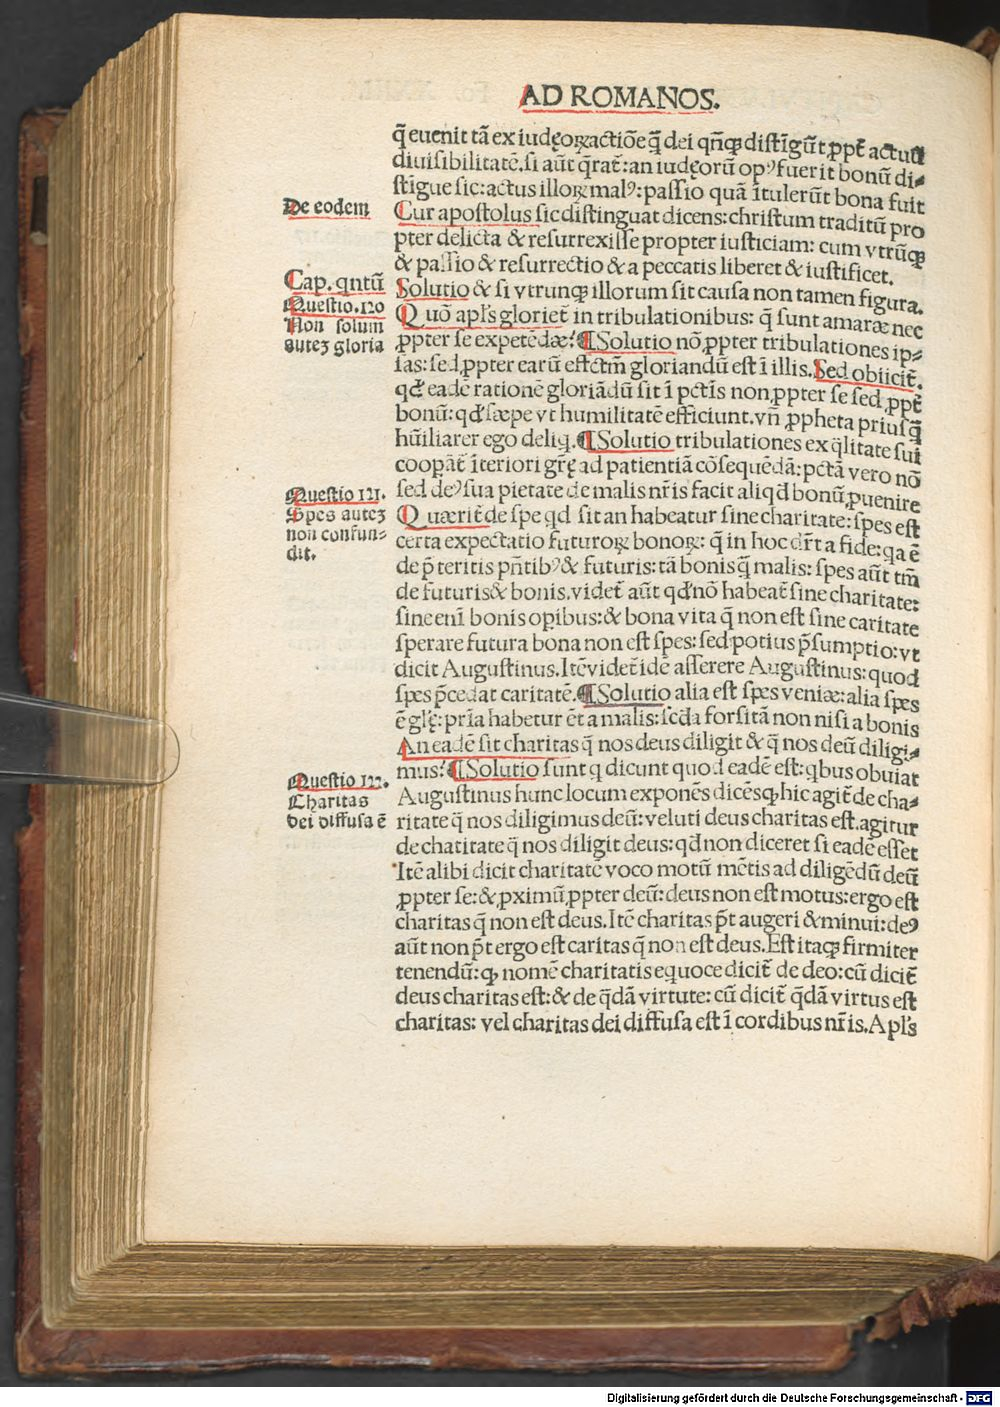 AD ROMANOS.
q̄ euenit tā ex iudęoꝝ actiōe q̄̄ dei qn̄qꝫ distīgūt ꝓpt̄ actuū
diuisibilitatē. si aūt q̄rat̄: an iudęorū opꝰ fuerit bonū di⸗
stīgue sic: actus illoꝝ malꝰ: passio quā ītulerūt bona fuit
De eodem
Cur apostolus sic distinguat dicens: christum traditū pro
pter delicta & resurrexisse propter iusticiam: cum vtrūqꝫ
& passio & resurrectio & a peccatis liberet & iustificet.
Cap. qntū
Solutio & si vtrunqꝫ illorum sit causa non tamen figura.
Questio. 120
Non solum
autez gloria
Quō apl's glorieť in tribulationibus: q̄ sunt amaræ nec
ꝓpter se expetēdæ? ¶ Solutio nō ꝓpter tribulationes ip⸗
sas: sed ꝓpter earū effectm̄ gloriandū est ī illis. Sed obiicit̄.
qď eadē rationē gloriādū sit ī pctīs non ꝓpter se sed ꝓpt̄
bonū: qď sæpe vt humilitatē efficiunt. vn̄ ꝓpheta priusq̄̄
hūiliarer ego deliq. ¶ Solutio tribulationes ex q̄litate sui
coopāt̄ īteriori grę̄ ad patientiā cōsequēdā: pctā vero nō
sed deꝰ sua pietate de malis nr̄is facit aliqď bonū ꝓuenire
Questio 121.
Spes autez
non confun⸗
dit.
Quærit̄ de spe qď sit an habeatur sine charitate: spes est
certa expectatio futuroꝝ bonoꝝ: q̄ in hoc dr̄t a fide: qa ē
de p̄teritis pn̄tibꝰ & futuris: tā bonis q̄̄ malis: spes aūt tm̄
de futuris & bonis. videt̄ aūt qď nō habeat̄ sine charitate:
sine enī bonis opibus: & bona vita q̄ non est sine caritate
sperare futura bona non est spes: sed potius p̄sumptio: vt
dicit Augustinus. Itē videt̄ idē asserere Augustinus: quod
spes p̄cedat caritatē. ¶ Solutio alia est spes veniæ: alia spes
ē glę̄: pria habetur ēt a malis: scďa forsitā non nisi a bonis
An eadē sit charitas q̄ nos deus diligit & q̄ nos deū diligi⸗
mus? ¶ Solutio sunt q dicunt quod eadē est: qbus obuiat
Questio 122.
Charitas
dei diffusa ē
Augustinus hunc locum exponēs dicēs qꝫ hic agit̄ de cha⸗
ritate q̄ nos diligimus deū: veluti deus charitas est. agitur
de chatitate q̄ nos diligit deus: qď non diceret si eadē esset
Itē alibi dicit charitatē voco motū mētis ad diligēdū deū
ꝓpter se: & ꝓximū ꝓpter deū: deus non est motus: ergo est
charitas q̄ non est deus. Itē charitas p̄t augeri & minui: deꝰ
aūt non p̄t ergo est caritas q̄ non est deus. Est itaqꝫ firmiter
tenendū: qꝫ nomē charitatis equoce dicit̄ de deo: cū dicit̄
deus charitas est: & de q̄dā virtute: cū dicit̄ q̄dā virtus est
charitas: vel charitas dei diffusa est ī cordibus nr̄is. Apl's
Digitalisierung gefördert durch die Deutsche Forschungsgemeinschaft - DFG